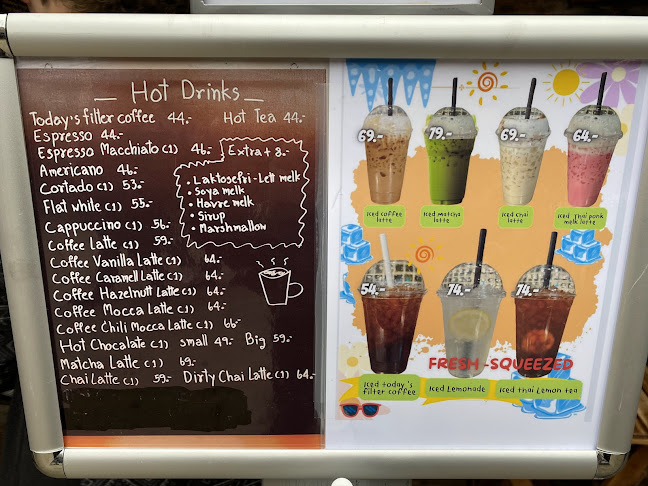 Hot Drinks
Today's filter coffee 44.- Hot Tea 44.-
Espresso 44.-
Espresso Macchiato (1) 46.-
Americano 46.-
Cortado (1) 53.-
Flat while (1) 55.-
Cappuccino (1) 56.-
Coffee Latte (1) 59.-
Coffee Vanilla Latte (1) 64.-
Coffee Caramell Latte (1) 64.-
Coffee Hazelnutt Latte (1) 64.-
Coffee Mocca Latte (1) 64.-
Coffee Chili Mocca Latte (1) 66.-
Hot Chocolate (1) small 49.- Big 59.-
Matcha Latte (1) 69.-
Chai Latte (1) 59.- Dirty Chai Latte (1) 64.-
Extra + 8.-
• Laktosefri - Lett melk
• Soya melk
• Havre melk
• Sirup
• Marshmallow
69.- 79.- 69.- 64.-
Iced coffee latte
Iced matcha latte
Iced chai latte
Iced Thai pank melk latte
54.- 74.- 74.-
FRESH-SQUEEZED
Iced today's filter coffee
Iced Lemonade
Iced thai Lemon tea